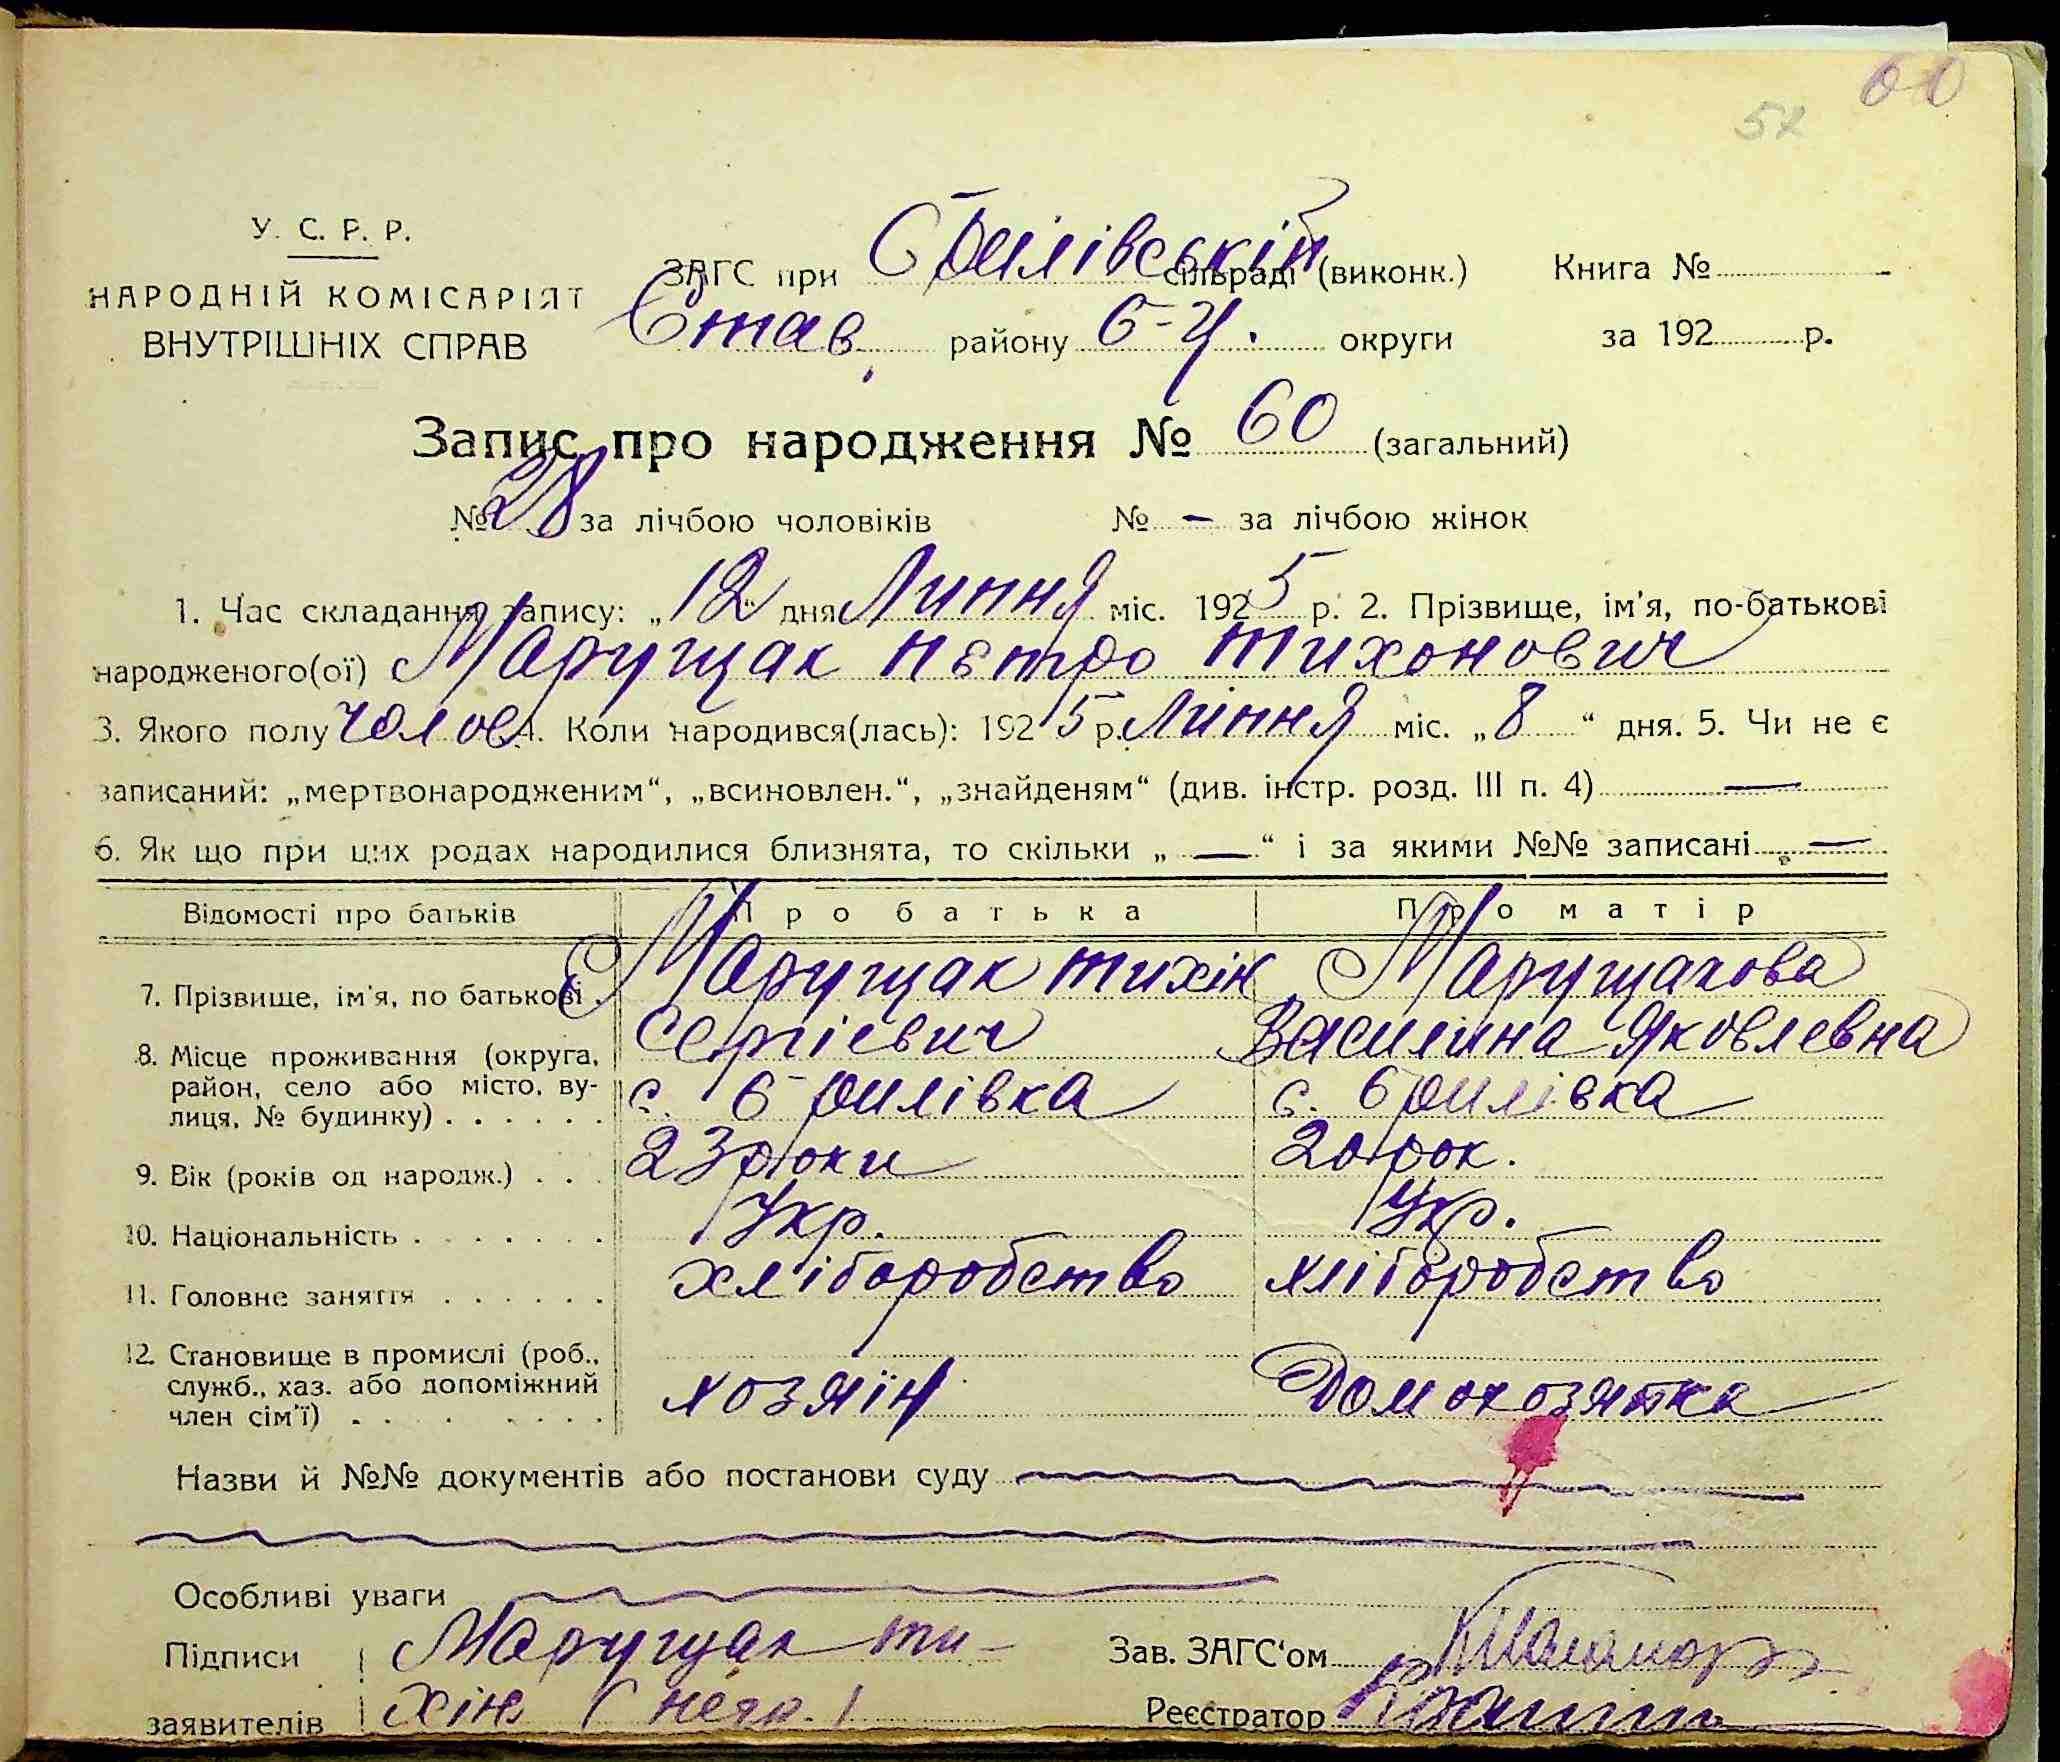 60
52
У. С. Р. Р.
НАРОДНІЙ КОМІСАРІЯТ
ВНУТРІШНІХ СПРАВ
ЗАГС при сільраді (виконк.) Книга №
Став. району Б-Ц. округи за 192 р.
Запис про народження № 60 (загальний)
№ 28 за лічбою чоловіків № — за лічбою жінок
1. Час складання запису: „12“ дня Липня міс. 1925 р. 2. Прізвище, ім'я, по-батькові
народженого(ої) Марущак Петро Тихонович
3. Якого полу чолов. 4. Коли народився(лась): 1925 р. Липня міс. „8“ дня. 5. Чи не є
записаний: „мертвонародженим“, „всиновлен.“, „знайденям“ (див. інстр. розд. III п. 4) —
6. Як що при цих родах народилися близнята, то скільки „—“ і за якими №№ записані —
Відомості про батьків Про батька Про матір
7. Прізвище, ім'я, по батькові Марущак Тихін Марущакова
Сергіевич Василина Яковлевна
8. Місце проживання (округа,
район, село або місто, ву-
лиця, № будинку) с. с.
9. Вік (років од народж.) 23 роки 20 рок.
10. Національність Укр. Укр.
11. Головне заняття хліборобство хліборобство
12. Становище в промислі (роб.,
служб., хаз. або допоміжний
член сім'ї) хозяїн Домохозяйка
Назви й №№ документів або постанови суду
Особливі уваги
Підписи Марущак Ти-
заявителів хін (негр.)
Зав. ЗАГС'ом
Реєстратор